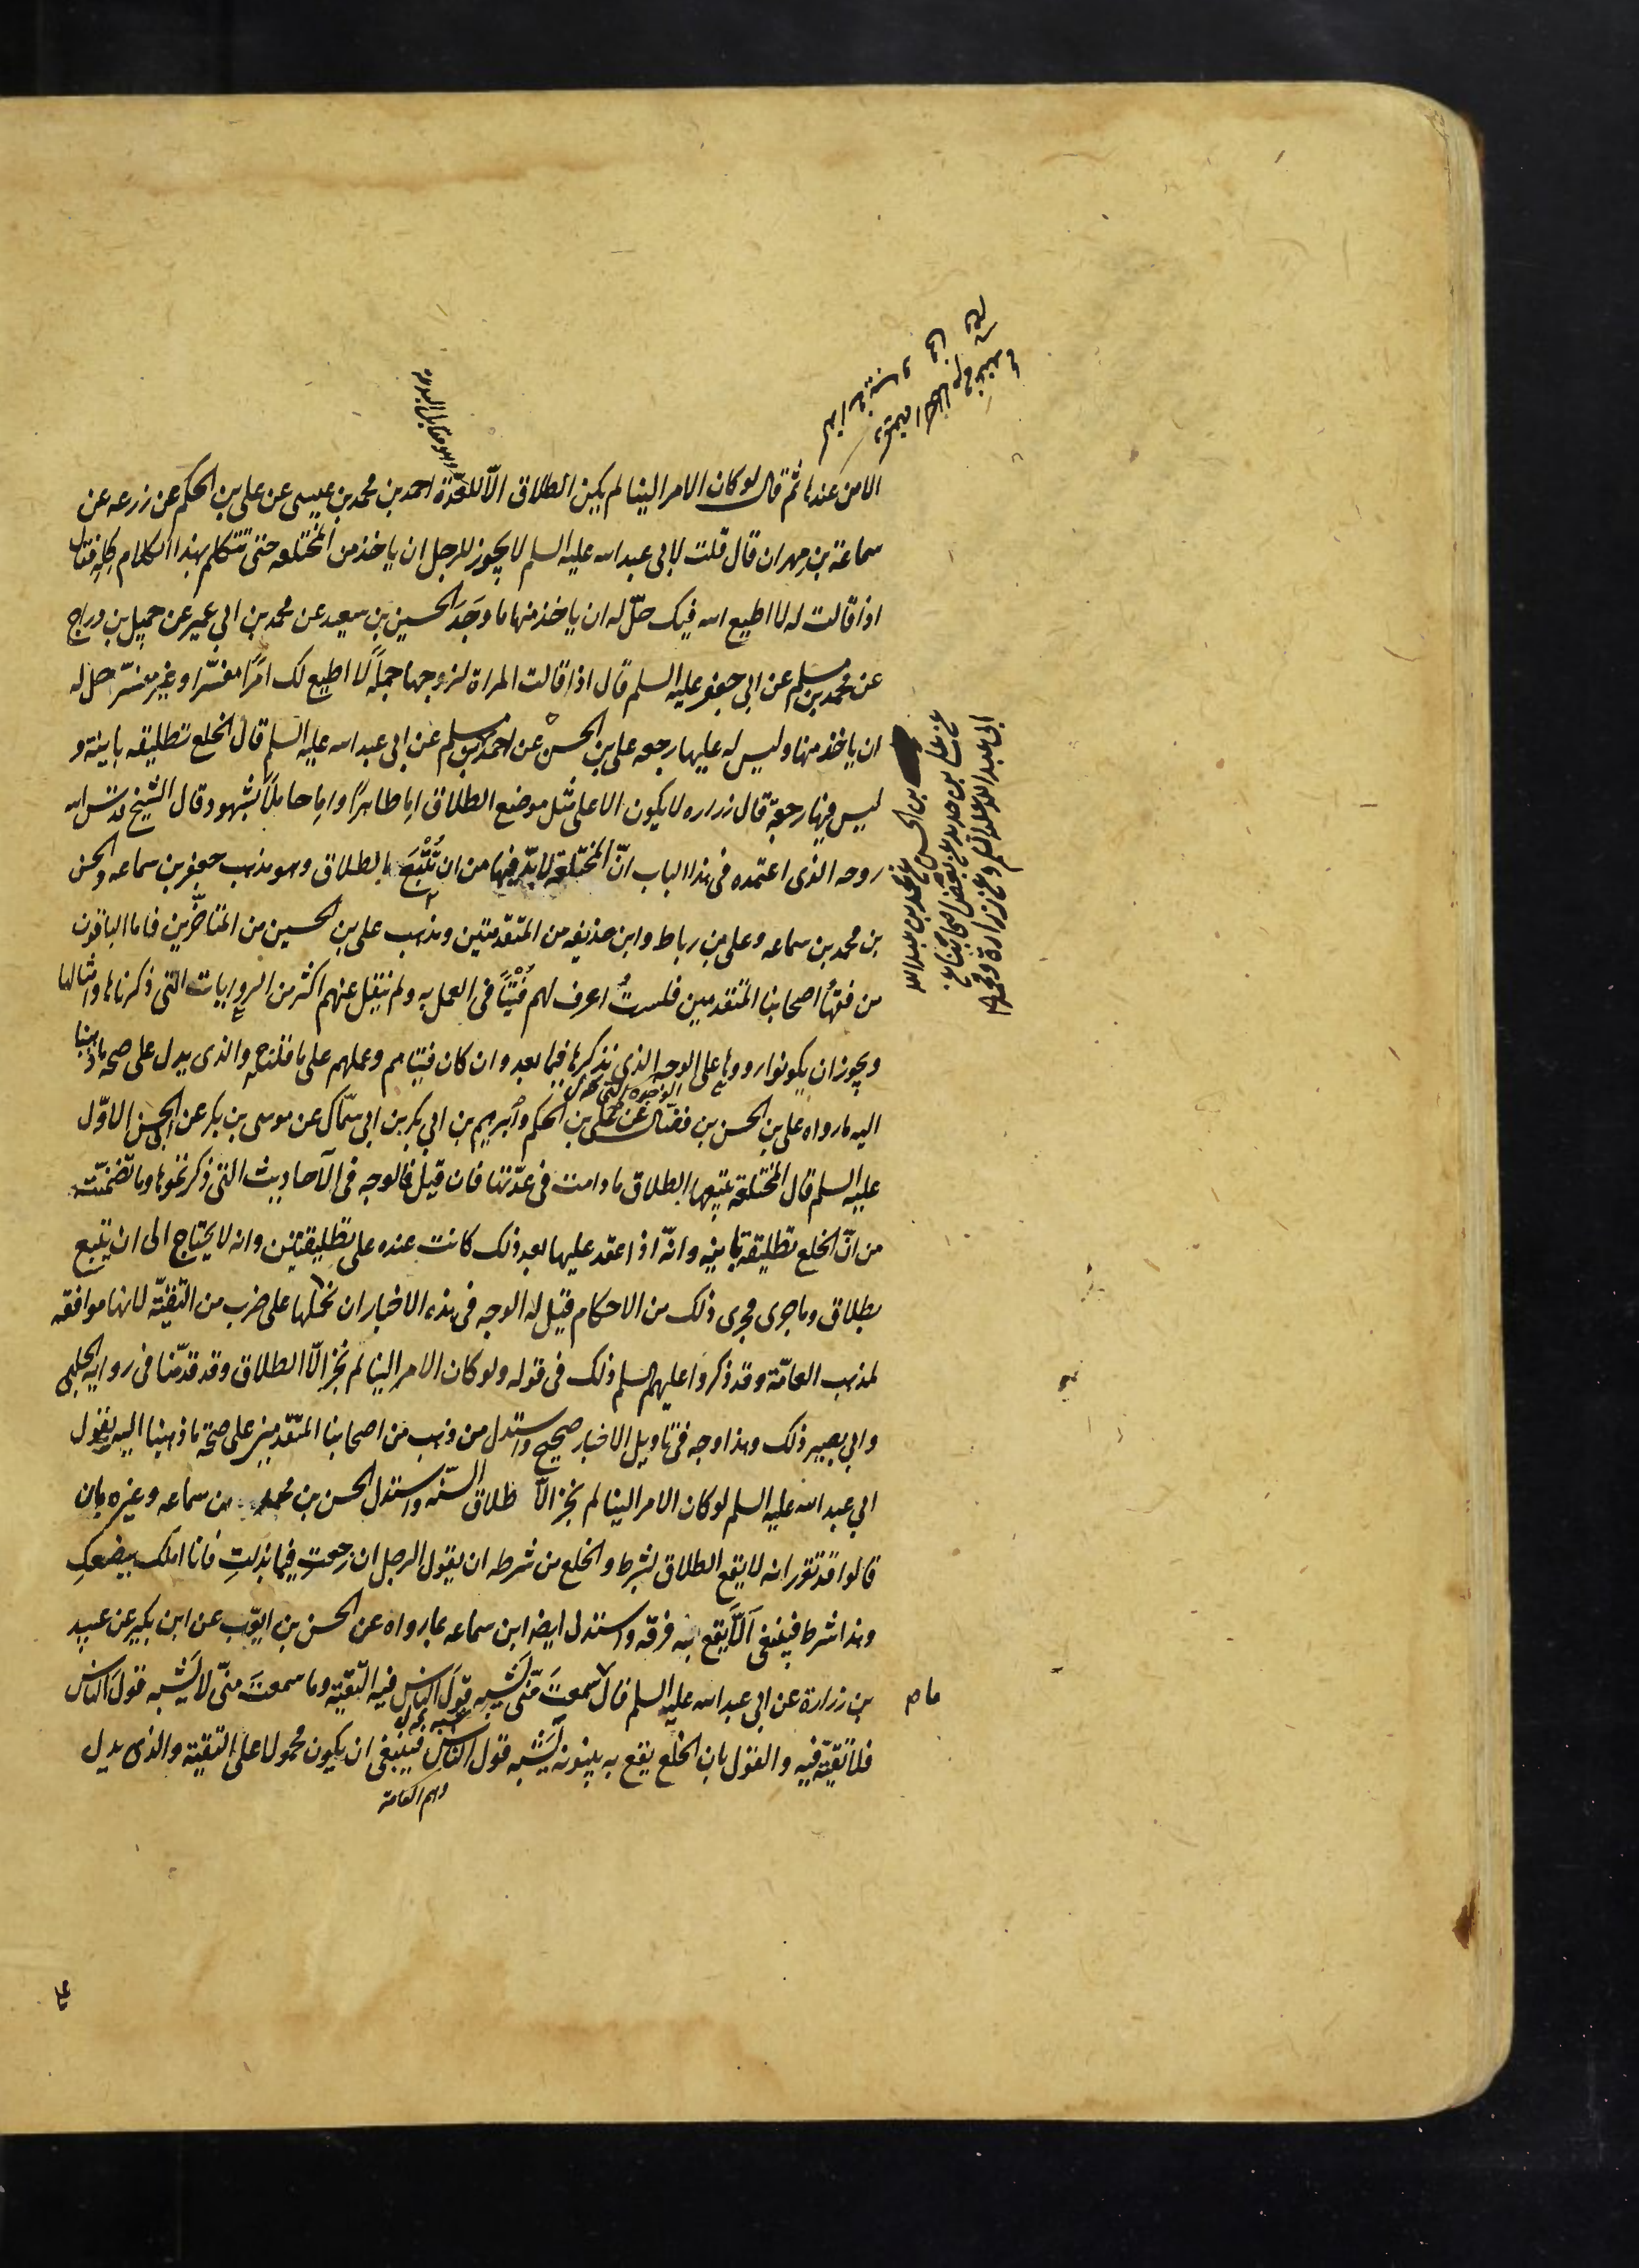 وهو مقابل البدعة
الا من عندها ثم قال لو كان الامر الينا لم يكن الطلاق الّا للعدّة احمد بن محمد بن عيسى عن على بن الحكم عن زرعه عن
سماعة بن مهران قال قلت لابى عبد الله عليه السلم لا يجوز للرجل ان ياخذ من المختلعه حتى تتكلم بهذا الكلام كلّه فقال
اذا قالت له لا اطيع الله فيك حلّ له ان ياخذ منها ما وجد الحسين بن سعيد عن محمد بن ابي عمير عن جميل بن دراج
عن محمد بن مسلم عن ابى جعفر عليه السلم قال اذا قالت المراة لزوجها جملةً لا اطيع لك امرًا مفسّرا وغير مفسّر حل له
ان ياخذ منها وليس له عليها رجعه على بن الحسن عن احمد بن مسلم عن ابى عبد الله عليه السلم قال الخلع تطليقه باينة و
ليس فيها رجعة قال زراره لا يكون الا على مثل موضع الطلاق اما طاهرًا واما حاملًا بشهود قال الشيخ قدس الله
روحه الذى اعتمده فى هذا الباب انّ المختلعة لا بدّ فيها من ان تُتْبَعَ بالطلاق وهو مذهب جعفر بن سماعه والحسن
بن محمد بن سماعه وعلى بن رباط وابن حذيفه من المتقدّمين ومذهب على بن الحسين من المتاخّرين فاما الباقون
من فقهاء اصحابنا المتقدمين فلستُ اعرف لهم فُتْيًا فى العمل به ولم ينقل عنهم اكثر من الروايات التى ذكرناها وامثالها
ويجوز ان يكونوا رووها على الوجه الذى نذكرها فيما بعد وان كان فتياهم وعملهم على ما قلناه والذى يدل على صحة ما ذهبنا
اليه ما رواه على بن الحسن بن فضال عن على بن الحكم وابرهيم بن ابي بكر بن ابى سمّاك عن موسى بن بكر عن ابى الحسن الاوّل
عليه السلم قال المختلعة يتبعها الطلاق ما دامت فى عدّتها فان قيل فما الوجه فى الاحاديث التى ذكرتموها وما تضمّنته
من انّ الخلع تطليقة باينه وانّه اذا عقد عليها بعد ذلك كانت عنده على تطليقتين وانه لا يحتاج الى ان يتبع
بطلاق وما جرى مجرى ذلك من الاحكام قيل له الوجه فى هذه الاخبار ان نحملها على ضرب من التقيّة لانها موافقه
لمذهب العامّة وقد ذكروا عليهم السلم ذلك فى قوله ولو كان الامر الينا لم نجز الّا الطلاق وقد قدّمنا فى رواية الحلبى
وابي بصير ذلك وهذا وجه فى تاويل الاخبار صحيح واستدل من ذهب من اصحابنا المتقدمين على صحّة ما ذهبنا اليه بقول
ابي عبد الله عليه السلم لو كان الامر الينا لم نجز الّا طلاق السنّه واستدل الحسن بن محمد بن سماعه وغيره بان
قالوا قد تقرر انه لا يقع الطلاق بشرط والخلع من شرطه ان يقول الرجل ان رجعتِ فيما بذلتِ فانا املك ببضعكِ
وهذا شرط فينبغى الّا يقع به فرقه واستدل ايضا ابن سماعه بما رواه عن الحسن بن ايّوب عن ابن بكير عن عبيد
بن زرارة عن ابى عبد الله عليه السلم قال ما سمعتَ منّى يشبه قولَ الناس فيه التقيّة وما سمعتَ منّى لا يشبه قولَ الناس
فلا تقيّة فيه والقول بان الخلع يقع به بينونه يشبه قول الناس فينبغى ان يكون محمولا على التقية والذى يدل
وهم العامة
على